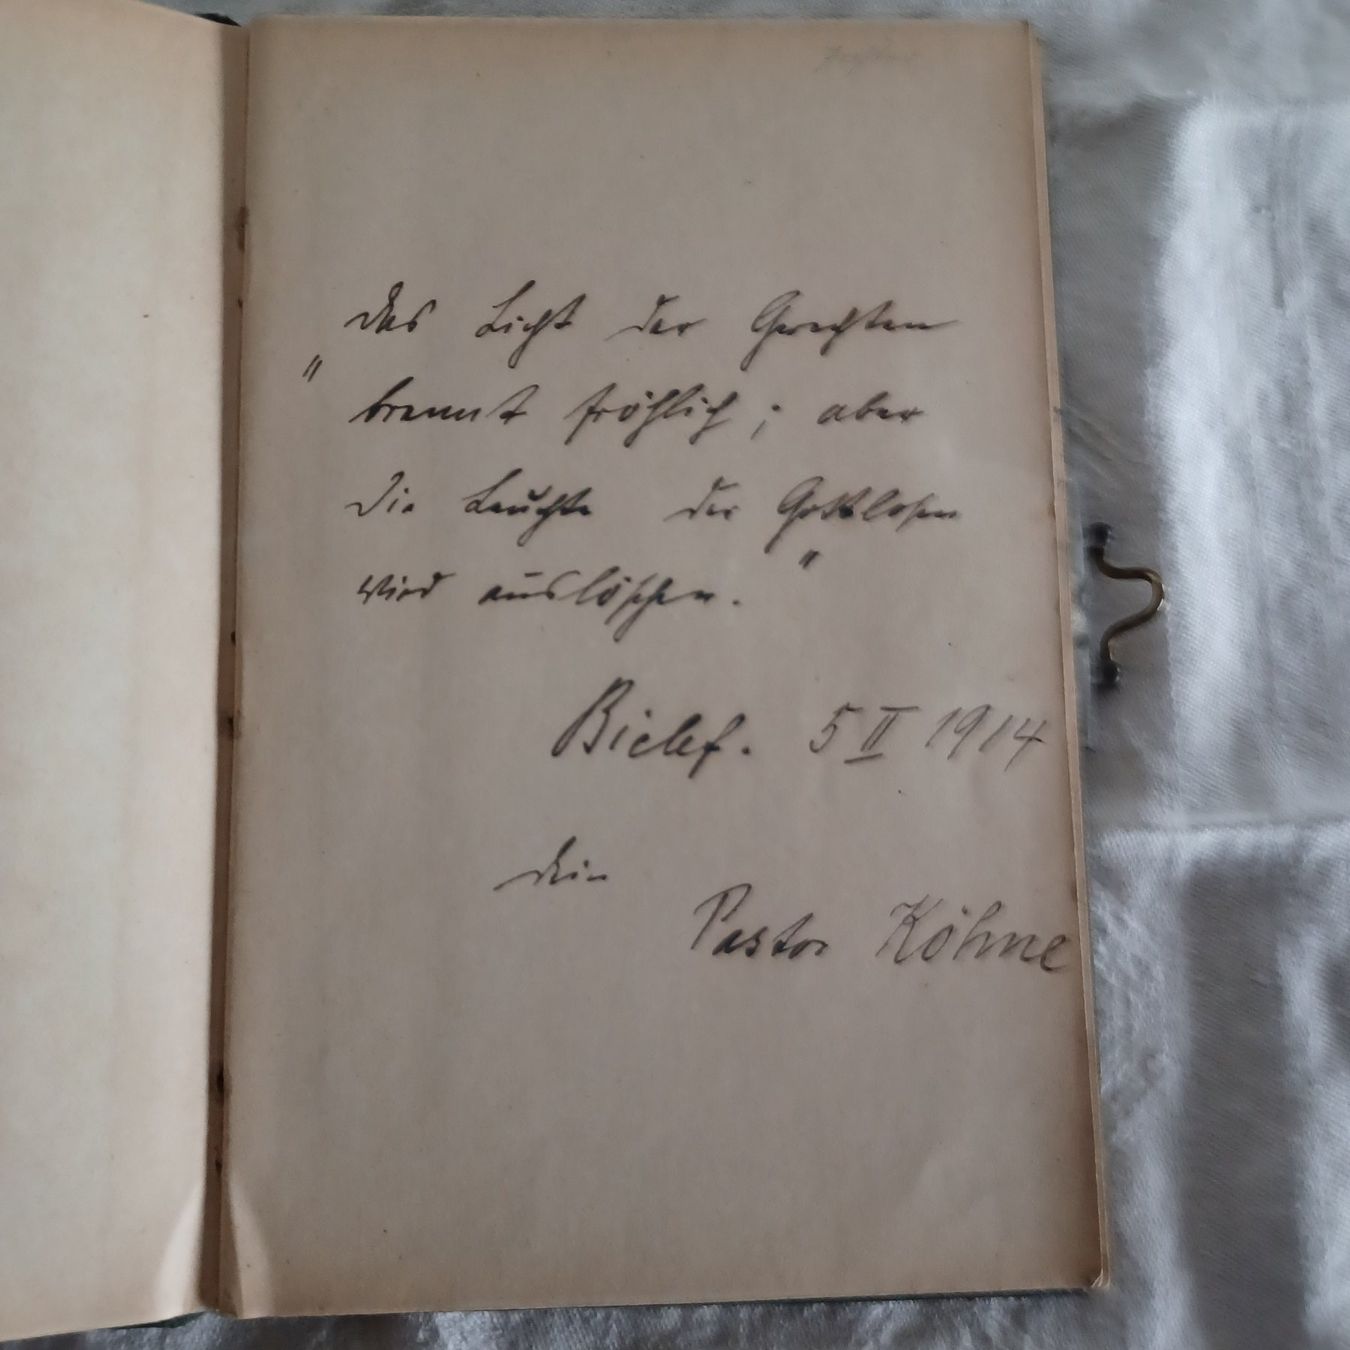 „Das Licht der Gerechten
brennt fröhlich; aber
die Leuchte der Gottlosen
wird auslöschen."
Bielef. 5 II 1914
Dein
Pastor Köhne